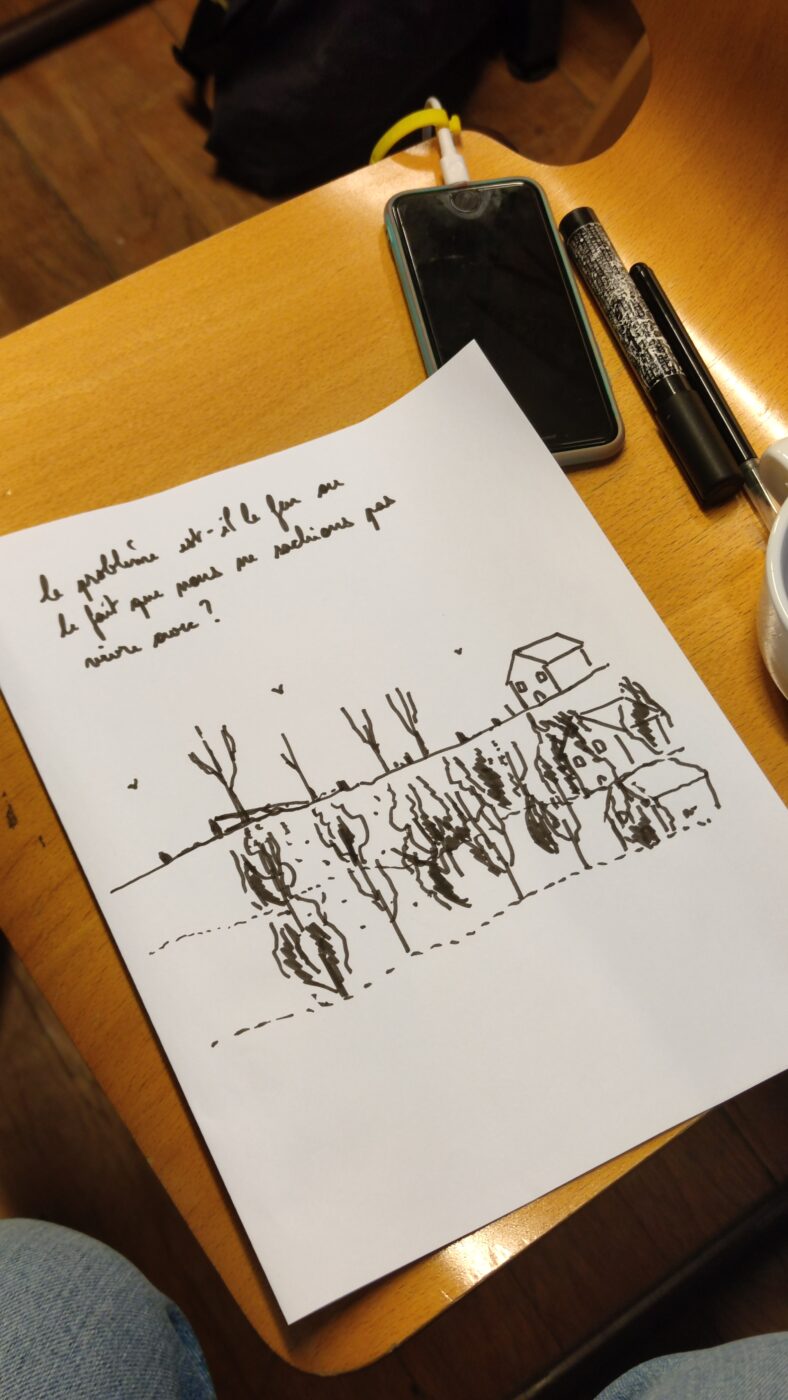 le problème est-il le feu ou
le fait que nous ne sachions pas
vivre avec ?